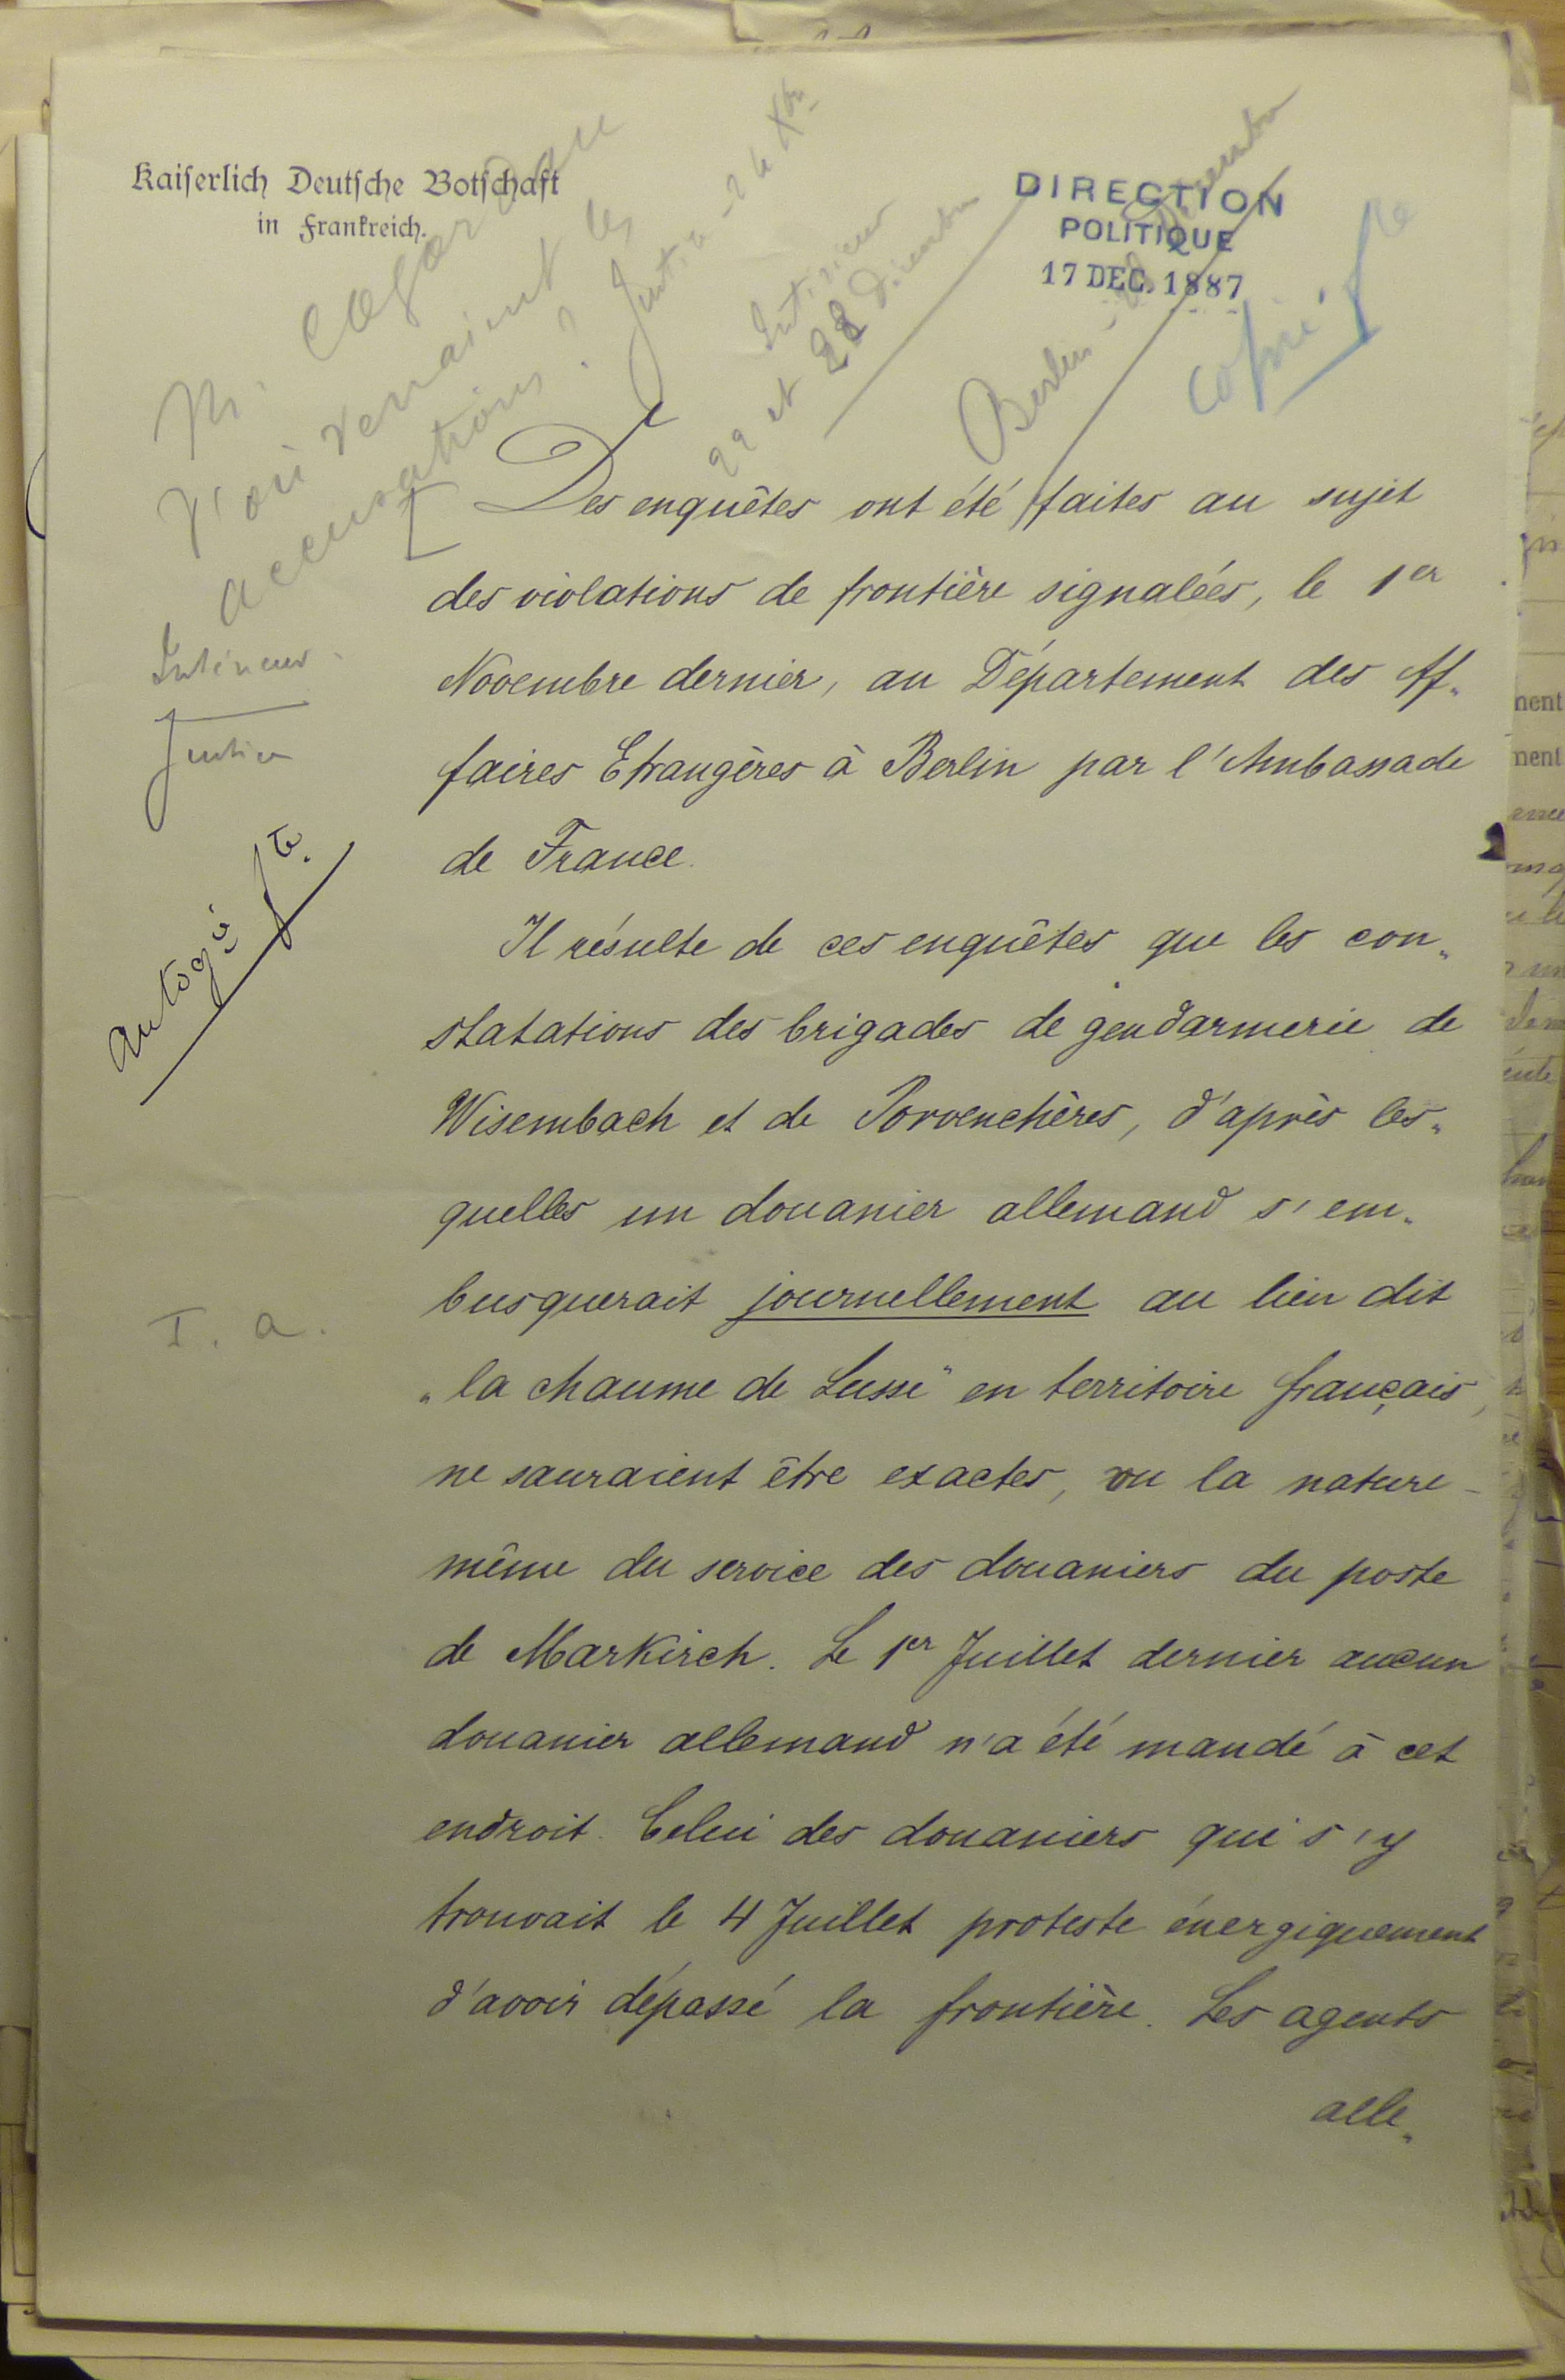 Kaiserlich Deutsche Botschaft
in Frankreich.
DIRECTION
POLITIQUE
17 DEC. 1887
M. Cogordan
D'où venaient les
accusations?
Justice - 24 Xbre
Intérieur
22 et 28 Décembre
Berlin - Décembre
Copié
Intérieur.
Justice
autogié
I. a.
Des enquêtes ont été faites au sujet
des violations de frontière signalées, le 1er
Novembre dernier, au Département des Af-
faires Etrangères à Berlin par l'Ambassade
de France.
Il résulte de ces enquêtes que les con-
statations des brigades de gendarmerie de
Wisembach et de Provenchères, d'après les-
quelles un douanier allemand s'em-
busquerait journellement au lieu dit
„la chaume de Lusse" en territoire français,
ne sauraient être exactes, vu la nature
même du service des douaniers du poste
de Markirch. Le 1er Juillet dernier aucun
douanier allemand n'a été mandé à cet
endroit. Celui des douaniers qui s'y
trouvait le 4 Juillet proteste énergiquement
d'avoir dépassé la frontière. Les agents
alle-